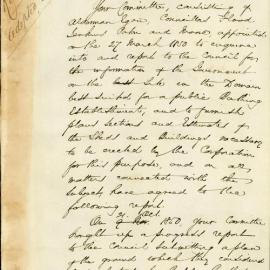 Your Committee, consisting of
Alderman Egan, Councillors Flood,
Jenkins and appointed
on the 27 March 1850 to enquire
into and report to the Council for
the information of the Government
on the best Site in the Domain
best suited for a public Bathing
Establishment, and to furnish
plans sections and Estimates of
the Sheds and Buildings necessary
to be erected by the Corporation
for this purpose, and on all
matters connected with the
subject have agreed to the
following report.
On 1850, your Committee
brought up a progress report
to the Council submitting a plan
of the ground which they considered